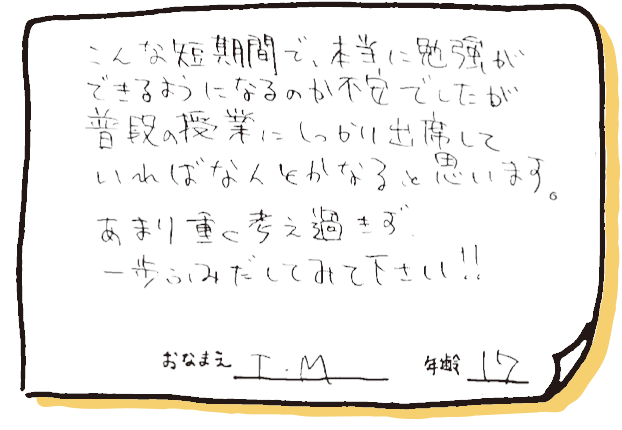 こんな短期間で、本当に勉強が
できるようになるのか不安でしたが
普段の授業にしっかり出席して
いればなんとかなると思います。
あまり重く考え過ぎず
一歩ふみだしてみて下さい!!
おなまえ I.M 年齢 17